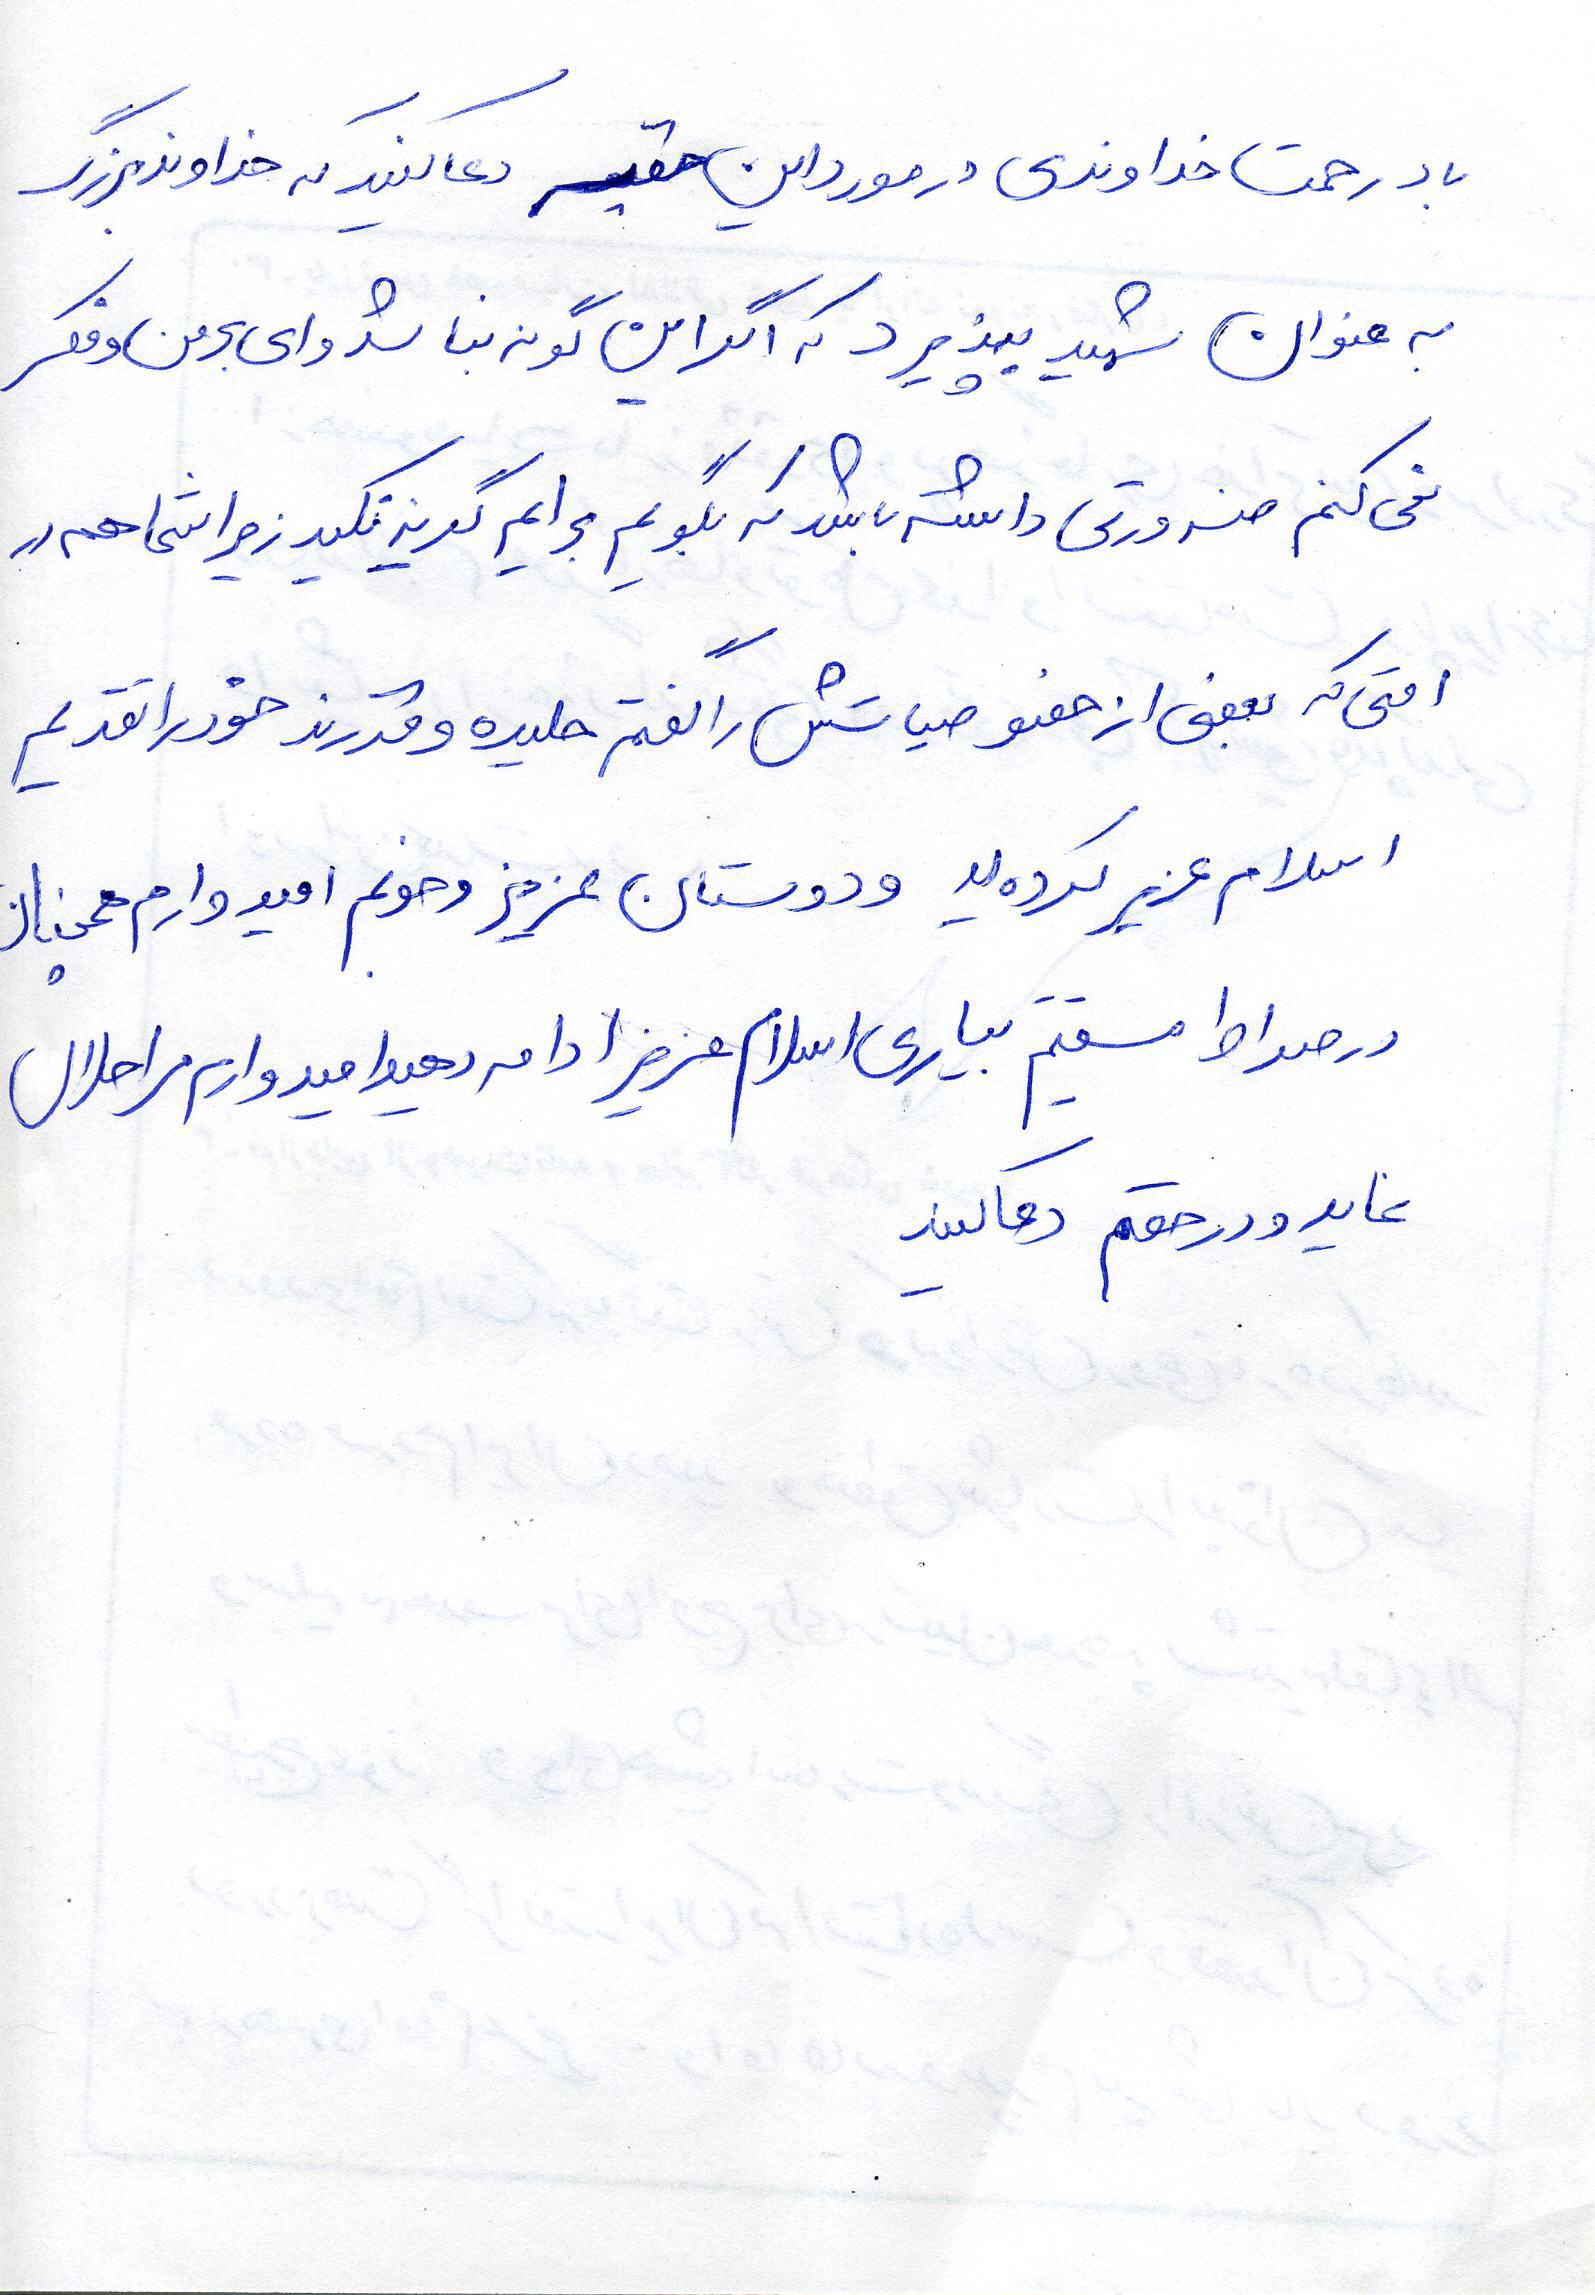 باد رحمت خداوندی در مورد این حقیر دعا کنید که خداوند بزرگ
به عنوان شهید بپذیرد که اگر این گونه نباشد وای بر من و فکر
نمی کنم ضرورتی داشته باشد که بگویم برایم گریه نکنید زیرا شما همه در
امتی که بعضی از خصوصیاتش را گفتم حلیده و فرزند خود را تقدیم
اسلام عزیز کرده اید و دوستان عزیز و خوبم امیدوارم همچنان
در صراط مستقیم بیاری اسلام عزیز ادامه دهید امیدوارم مرا حلال
نماید و در حقم دعا کنید